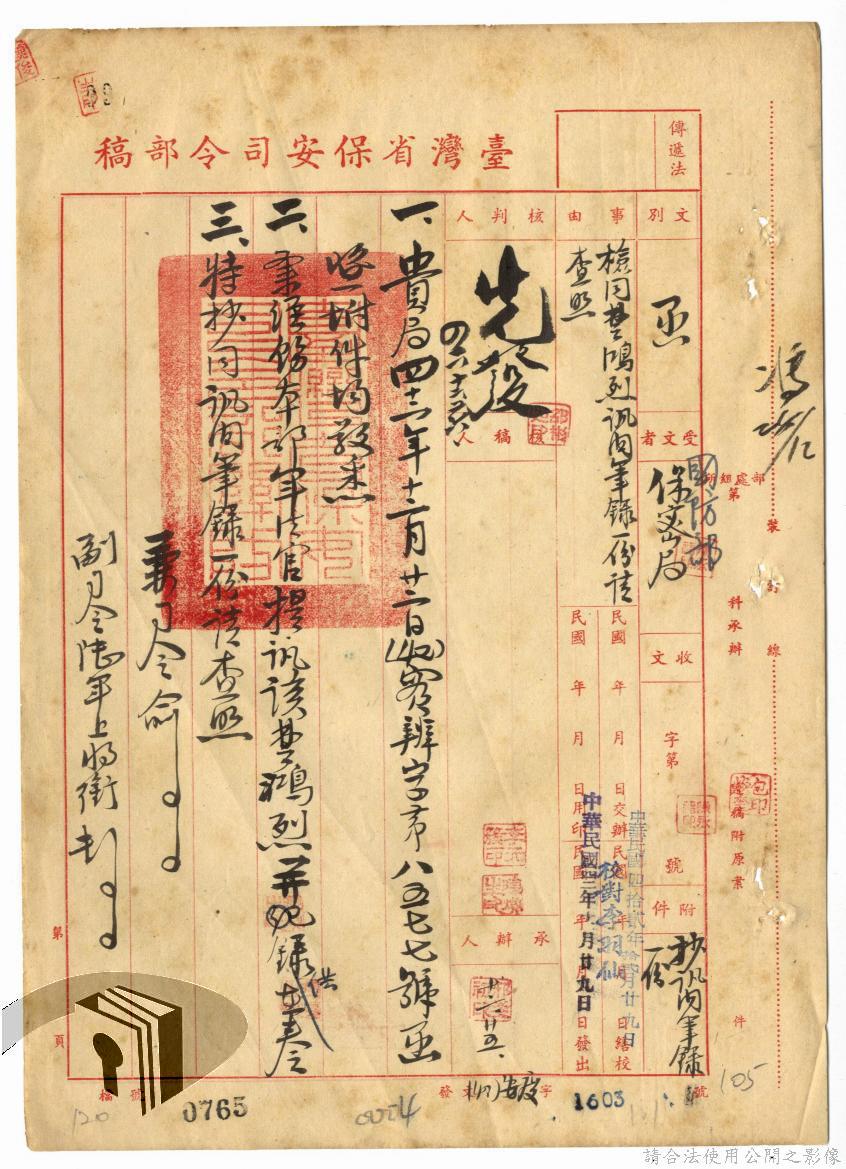 臺灣省保安司令部稿
傳遞法
文別
函
受文者
國防部
保密局
收文
字第
號
附件
抄訊問筆錄
一份
事由
檢同楚鴻烈訊問筆錄一份請
查照
民國 年 月 日交辦
民國 年 月 日繕校
民國 年 月 日用印
民國 年 月 日發出
中華民國四拾貳年拾貳月廿九日
校對李羽仙
中華民國四二年 月廿九日
核判人
先發
核稿人
承辦人
一、貴局四十二年十二月廿二日(42)密辦字第八五七七號函
暨附件均敬悉
二、業經飭本部軍法官提訊該楚鴻烈并紀錄在卷
供
三、特抄同訊問筆錄一份請查照
兼司令俞
副司令陸軍上將銜
部處組所
第
科承辦
隨稿附原案
件
裝
訂
線
包印
第
頁
檔
號
0765
120
發文
字
1603
號
105
請合法使用公開之影像